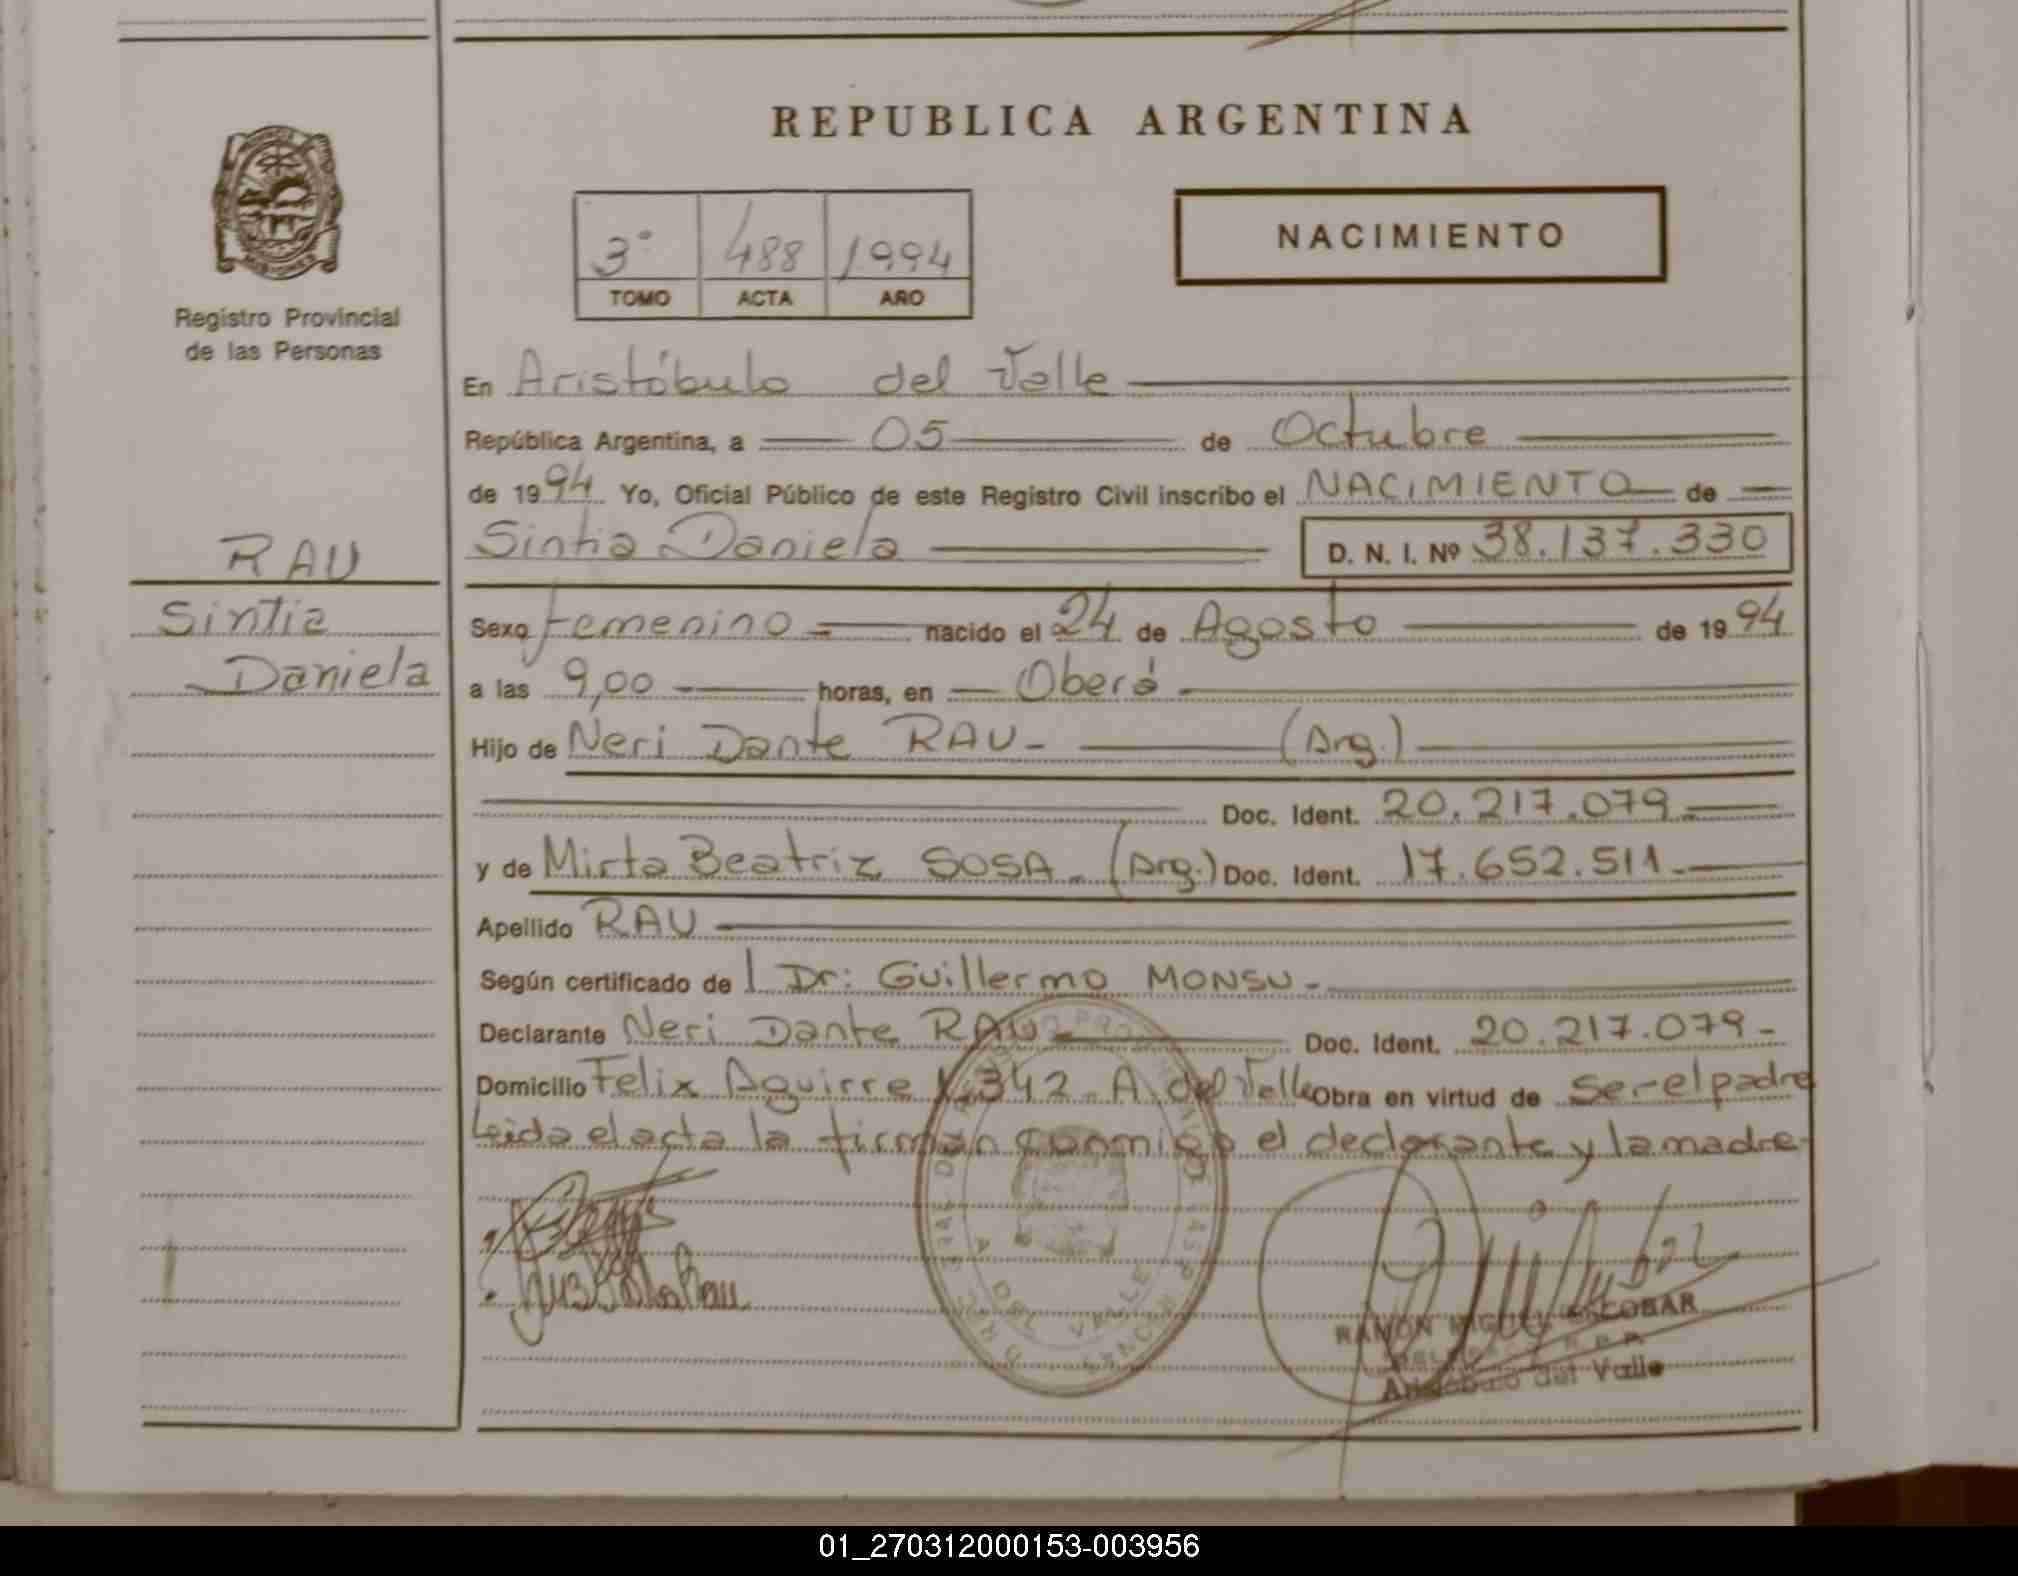 REPUBLICA ARGENTINA
NACIMIENTO
3° 488 1994
TOMO ACTA AÑO
Registro Provincial
de las Personas
En Aristóbulo del Valle
República Argentina, a 05 de Octubre
de 1994 Yo, Oficial Público de este Registro Civil inscribo el NACIMIENTO de
RAU
Sintia
Daniela
Sintia Daniela D. N. I. Nº 38.137.330
Sexo femenino nacido el 24 de Agosto de 1994
a las 9,00 horas, en Oberá
Hijo de Neri Dante RAU- (Arg.)
Doc. Ident. 20.217.079.
y de Mirta Beatriz SOSA. (Arg.) Doc. Ident. 17.652.511.
Apellido RAU
Según certificado de l Dr: Guillermo MONSU.
Declarante Neri Dante RAU Doc. Ident. 20.217.079-
Domicilio Felix Aguirre 342. A. del Valle Obra en virtud de ser el padre
Leida el acta la firman conmigo el declarante y la madre.
RAMON MIGUEL ESCOBAR
Aristóbulo del Valle
01_270312000153-003956